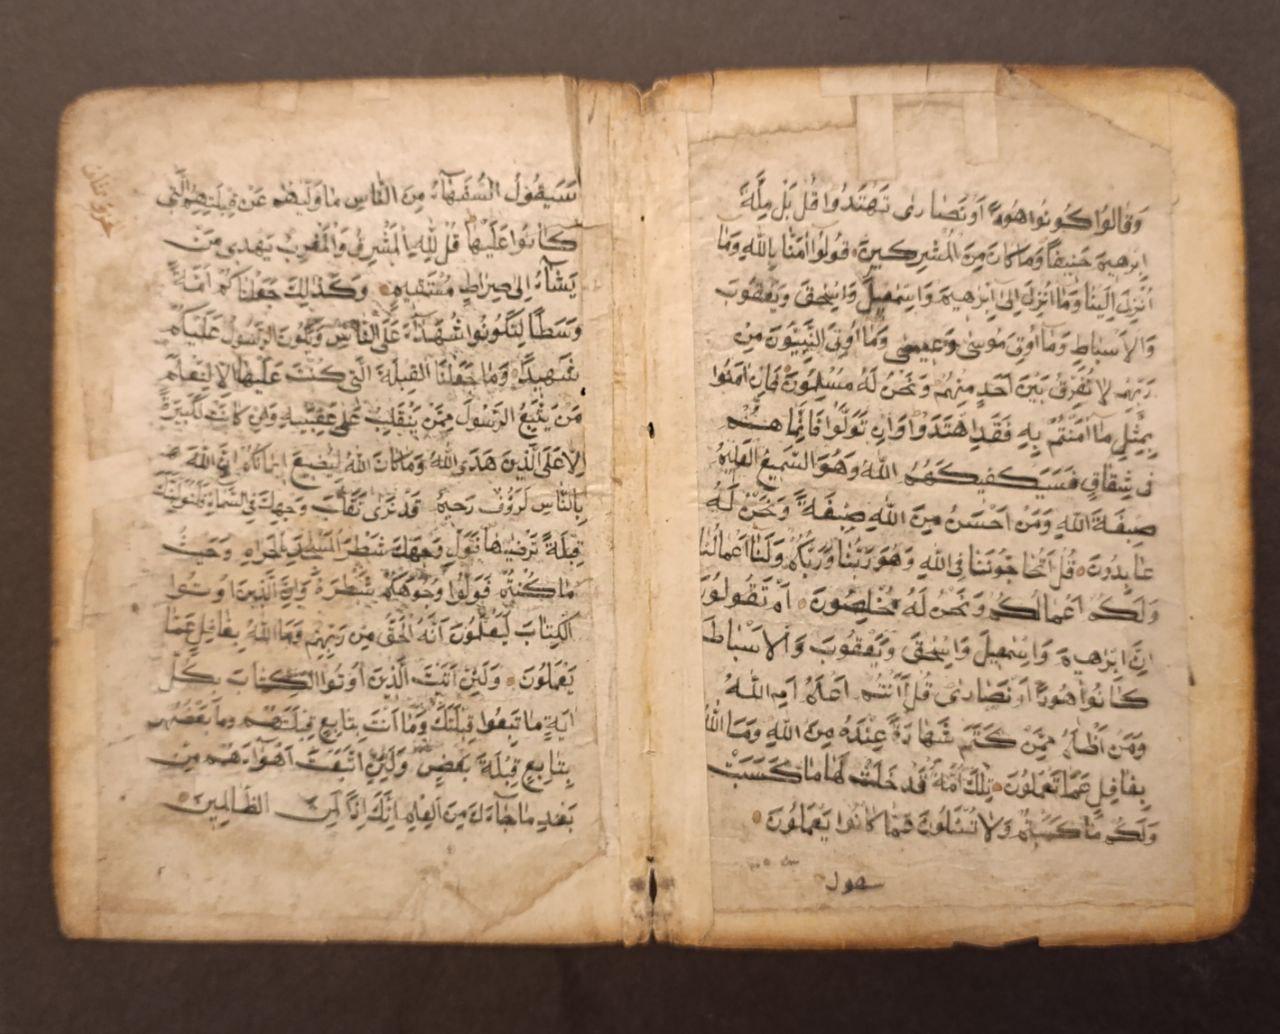 وَقَالُوا كُونُوا هُودًا اَوْ نَصَارٰى تَهْتَدُوا قُلْ بَلْ مِلَّةَ
اِبْرٰهِيمَ حَنِيفًا وَمَا كَانَ مِنَ الْمُشْرِكِينَ قُولُوا اٰمَنَّا بِاللّٰهِ وَمَا
اُنْزِلَ اِلَيْنَا وَمَا اُنْزِلَ اِلٰى اِبْرٰهِيمَ وَاِسْمٰعِيلَ وَاِسْحٰقَ وَيَعْقُوبَ
وَالْاَسْبَاطِ وَمَا اُوتِىَ مُوسٰى وَعِيسٰى وَمَا اُوتِىَ النَّبِيُّونَ مِنْ
رَبِّهِمْ لَا نُفَرِّقُ بَيْنَ اَحَدٍ مِنْهُمْ وَنَحْنُ لَهُ مُسْلِمُونَ فَاِنْ اٰمَنُوا
بِمِثْلِ مَا اٰمَنْتُمْ بِهِ فَقَدِ اهْتَدَوْا وَاِنْ تَوَلَّوْا فَاِنَّمَا هُمْ
فِى شِقَاقٍ فَسَيَكْفِيكَهُمُ اللّٰهُ وَهُوَ السَّمِيعُ الْعَلِيمُ
صِبْغَةَ اللّٰهِ وَمَنْ اَحْسَنُ مِنَ اللّٰهِ صِبْغَةً وَنَحْنُ لَهُ
عَابِدُونَ قُلْ اَتُحَاجُّونَنَا فِى اللّٰهِ وَهُوَ رَبُّنَا وَرَبُّكُمْ وَلَنَا اَعْمَالُنَا
وَلَكُمْ اَعْمَالُكُمْ وَنَحْنُ لَهُ مُخْلِصُونَ اَمْ تَقُولُونَ
اِنَّ اِبْرٰهِيمَ وَاِسْمٰعِيلَ وَاِسْحٰقَ وَيَعْقُوبَ وَالْاَسْبَاطَ
كَانُوا هُودًا اَوْ نَصَارٰى قُلْ ءَاَنْتُمْ اَعْلَمُ اَمِ اللّٰهُ
وَمَنْ اَظْلَمُ مِمَّنْ كَتَمَ شَهَادَةً عِنْدَهُ مِنَ اللّٰهِ وَمَا اللّٰهُ
بِغَافِلٍ عَمَّا تَعْمَلُونَ تِلْكَ اُمَّةٌ قَدْ خَلَتْ لَهَا مَا كَسَبَتْ
وَلَكُمْ مَا كَسَبْتُمْ وَلَا تُسْـَٔلُونَ عَمَّا كَانُوا يَعْمَلُونَ
سيقول
سَيَقُولُ السُّفَهَاءُ مِنَ النَّاسِ مَا وَلّٰيهُمْ عَنْ قِبْلَتِهِمُ الَّتِى
كَانُوا عَلَيْهَا قُلْ لِلّٰهِ الْمَشْرِقُ وَالْمَغْرِبُ يَهْدِى مَنْ
يَشَاءُ اِلٰى صِرَاطٍ مُسْتَقِيمٍ وَكَذٰلِكَ جَعَلْنَاكُمْ اُمَّةً
وَسَطًا لِتَكُونُوا شُهَدَاءَ عَلَى النَّاسِ وَيَكُونَ الرَّسُولُ عَلَيْكُمْ
شَهِيدًا وَمَا جَعَلْنَا الْقِبْلَةَ الَّتِى كُنْتَ عَلَيْهَا اِلَّا لِنَعْلَمَ
مَنْ يَتَّبِعُ الرَّسُولَ مِمَّنْ يَنْقَلِبُ عَلٰى عَقِبَيْهِ وَاِنْ كَانَتْ لَكَبِيرَةً
اِلَّا عَلَى الَّذِينَ هَدَى اللّٰهُ وَمَا كَانَ اللّٰهُ لِيُضِيعَ اِيمَانَكُمْ اِنَّ اللّٰهَ
بِالنَّاسِ لَرَؤُفٌ رَحِيمٌ قَدْ نَرٰى تَقَلُّبَ وَجْهِكَ فِى السَّمَاءِ فَلَنُوَلِّيَنَّكَ
قِبْلَةً تَرْضٰيهَا فَوَلِّ وَجْهَكَ شَطْرَ الْمَسْجِدِ الْحَرَامِ وَحَيْثُ
مَا كُنْتُمْ فَوَلُّوا وُجُوهَكُمْ شَطْرَهُ وَاِنَّ الَّذِينَ اُوتُوا
الْكِتَابَ لَيَعْلَمُونَ اَنَّهُ الْحَقُّ مِنْ رَبِّهِمْ وَمَا اللّٰهُ بِغَافِلٍ عَمَّا
يَعْمَلُونَ وَلَئِنْ اَتَيْتَ الَّذِينَ اُوتُوا الْكِتَابَ بِكُلِّ
اٰيَةٍ مَا تَبِعُوا قِبْلَتَكَ وَمَا اَنْتَ بِتَابِعٍ قِبْلَتَهُمْ وَمَا بَعْضُهُمْ
بِتَابِعٍ قِبْلَةَ بَعْضٍ وَلَئِنِ اتَّبَعْتَ اَهْوَاءَهُمْ مِنْ
بَعْدِ مَا جَاءَكَ مِنَ الْعِلْمِ اِنَّكَ اِذًا لَمِنَ الظَّالِمِينَ